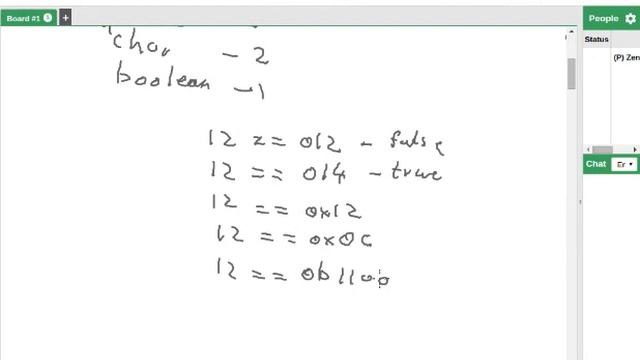 Board #1
+
People
Status
(P) Zen
Chat
Er
char - 2
boolean - 1
12 == 012 - false
12 == 014 - true
12 == 0x12
12 == 0x0C
12 == 0b1100